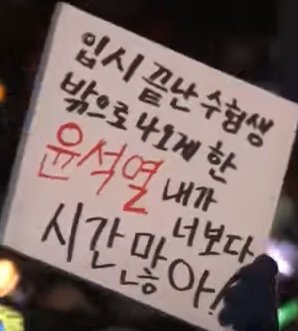 입시 끝난 수험생
밖으로 나오게 한
윤석열 내가
너보다
시간 많아!